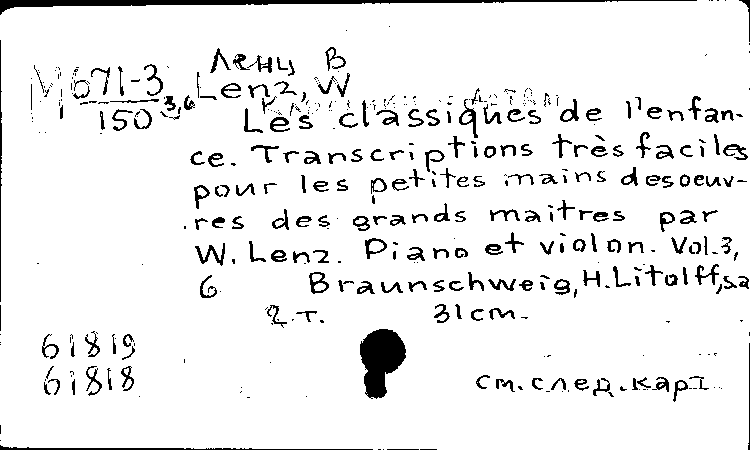 Ленц В
М671-3 Lenz, W
150 3,6
Классики - детям
Les classiques de l'enfan-
ce. Transcriptions très faciles
pour les petites mains desoeuv-
res des grands maitres par
W. Lenz. Piano et violon. Vol. 3,
6 Braunschweig, H. Litolff, s.a
2 т. 31cm.
61819
61818
см. след. карт